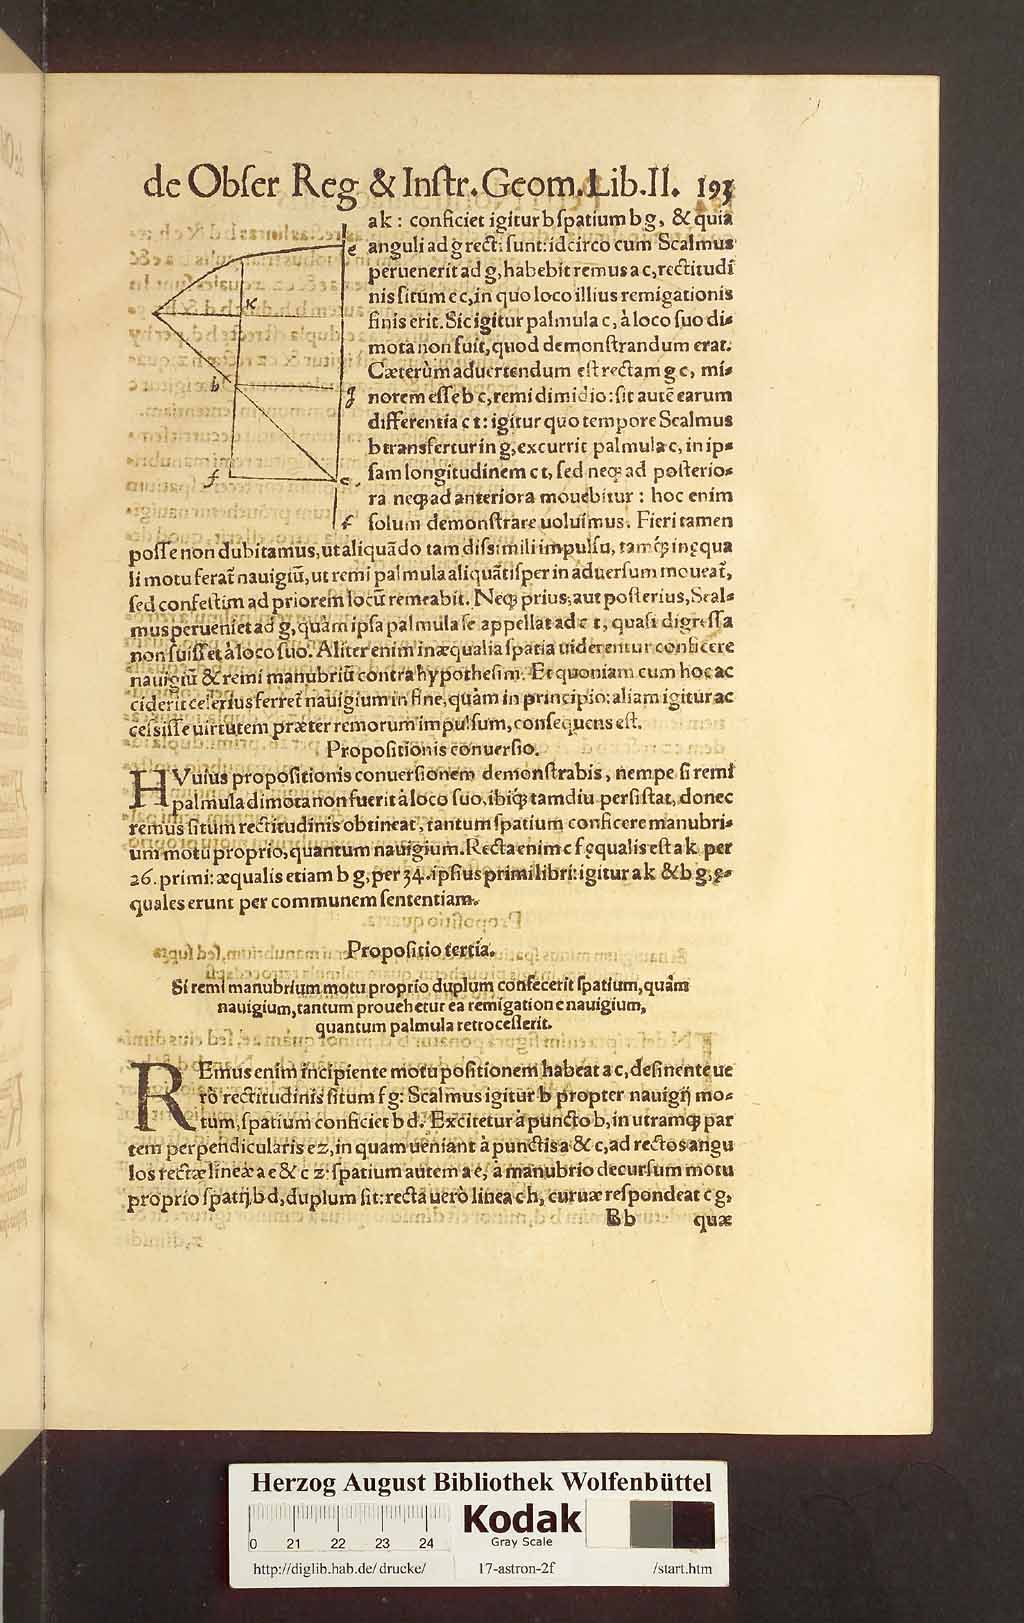 de Obſer Reg & Inſtr. Geom. Lib. II. 193
ak: conficiet igitur b ſpatium b g, & quia
anguli ad g rect: ſunt: idcirco cum Scalmus
peruenerit ad g, habebit remus a c, rectitudi
nis ſitum e c, in quo loco illius remigationis
finis erit. Sic igitur palmula c, à loco ſuo di-
mota non fuit, quod demonſtrandum erat.
Cæterùm aduertendum eſt rectam g c, mi-
norem eſſe b c, remi dimidio: ſit autē earum
differentia c t: igitur quo tempore Scalmus
b transfertur in g, excurrit palmula c, in ip-
ſam longitudinem c t, ſed neq; ad poſterio-
ra neq; ad anteriora mouebitur: hoc enim
ſolum demonſtrare uoluimus. Fieri tamen
poſſe non dubitamus, ut aliquādo tam diſsimili impulſu, tamq́; inęqua
li motu ferat̃ nauigiū, ut remi palmula aliquātiſper in aduerſum moueat̃,
ſed confeſtim ad priorem locū remeabit. Neq; prius, aut poſterius, Scal-
mus perueniet ad g, quàm ipſa palmula ſe appellat ad c t, quaſi digreſſa
non fuiſſet à loco ſuo. Aliter enim inæqualia ſpatia uiderentur conficere
nauigiū & remi manubriū contra hypotheſim. Et quoniam cum hoc ac
ciderit celerius ferret̃ nauigium in fine, quàm in principio: aliam igitur ac
ceſsiſſe uirtutem præter remorum impulſum, conſequens eſt.
Propoſitionis conuerſio.
HVuius propoſitionis conuerſionem demonſtrabis, nempe ſi remi
palmula dimota non fuerit à loco ſuo, ibiq́; tamdiu perſiſtat, donec
remus ſitum rectitudinis obtineat, tantum ſpatium conficere manubri-
um motu proprio, quantum nauigium. Recta enim c f ęqualis eſt a k per
26. primi: æqualis etiam b g, per 34. ipſius primi libri: igitur a k & b g, ę-
quales erunt per communem ſententiam.
Propoſitio tertia.
Si remi manubrium motu proprio duplum confecerit ſpatium, quàm
nauigium, tantum prouehetur ea remigatione nauigium,
quantum palmula retroceſſerit.
REmus enim incipiente motu poſitionem habeat a c, deſinente ue
rò rectitudinis ſitum f g: Scalmus igitur b propter nauigij mo-
tum, ſpatium conficiet b d. Excitetur à puncto b, in utramq; par
tem perpendicularis e z, in quam ueniant à punctis a & c, ad rectos angu
los rectæ lineæ a e & c z: ſpatium autem a e, à manubrio decurſum motu
proprio ſpatij b d, duplum ſit: recta uerò linea c h, curuæ reſpondeat c g,
Bb quæ
e
K
b
g
f
c.
t
Herzog August Bibliothek Wolfenbüttel
0 21 22 23 24
Kodak
Gray Scale
http://diglib.hab.de/drucke/ 17-astron-2f /start.htm